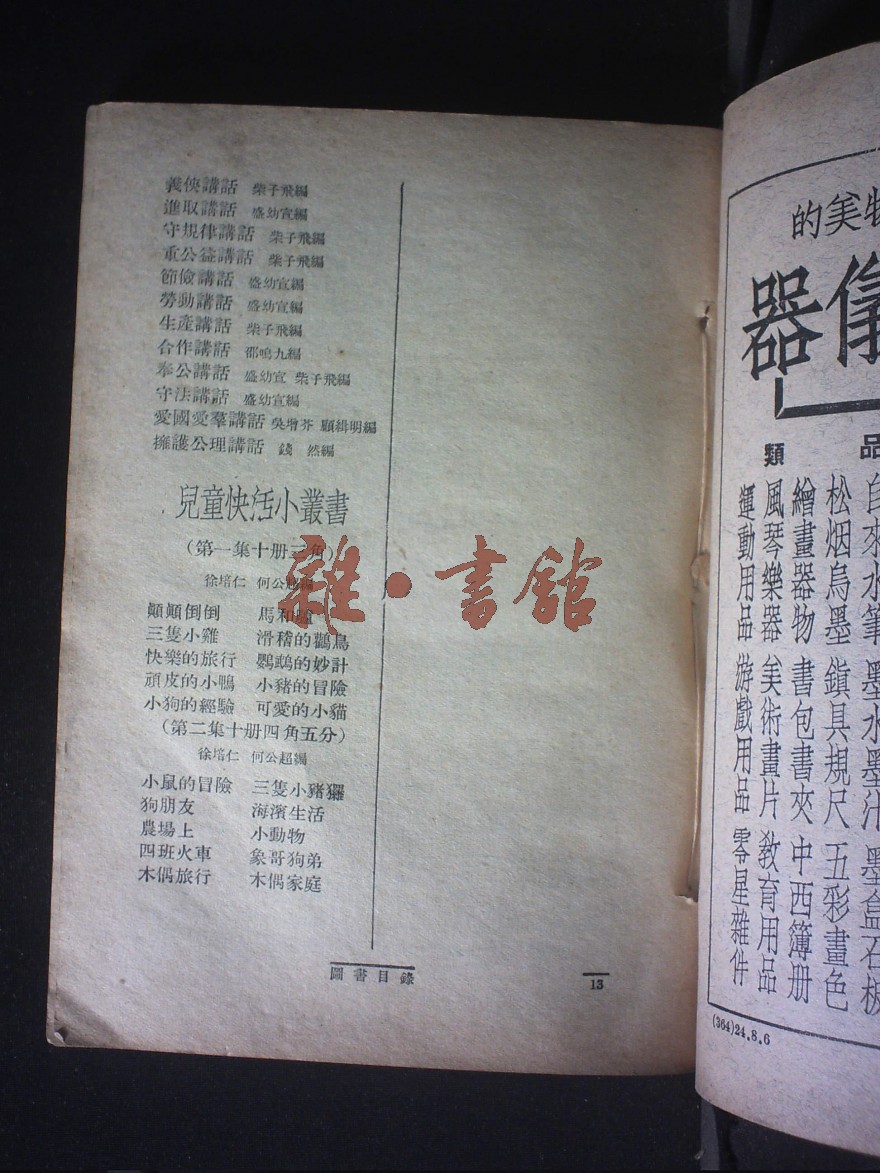 義俠講話 柴子飛編
進取講話 盛幼宣編
守規律講話 柴子飛編
重公益講話 柴子飛編
節儉講話 盛幼宣編
勞動講話 盛幼宣編
生產講話 柴子飛編
合作講話 邵鳴九編
奉公講話 盛幼宣 柴子飛編
守法講話 盛幼宣編
愛國愛羣講話 吳增芥 顧緝明編
擁護公理講話 錢 然編
兒童快活小叢書
(第一集十册三角)
徐培仁 何公超編
顛顛倒倒 馬和驢
三隻小雞 滑稽的鸛鳥
快樂的旅行 鸚鵡的妙計
頑皮的小鴨 小豬的冒險
小狗的經驗 可愛的小貓
(第二集十册四角五分)
徐培仁 何公超編
小鼠的冒險 三隻小豬玀
狗朋友 海濱生活
農場上 小動物
四班火車 象哥狗弟
木偶旅行 木偶家庭
圖書目錄
13
雜·書館
物美的
儀器
品類
自來水筆 墨水墨汁 墨盒石板
松烟烏墨 鎮具規尺 五彩畫色
繪畫器物 書包書夾 中西簿册
風琴樂器 美術畫片 教育用品
運動用品 游戲用品 零星雜件
(364)24.8.6